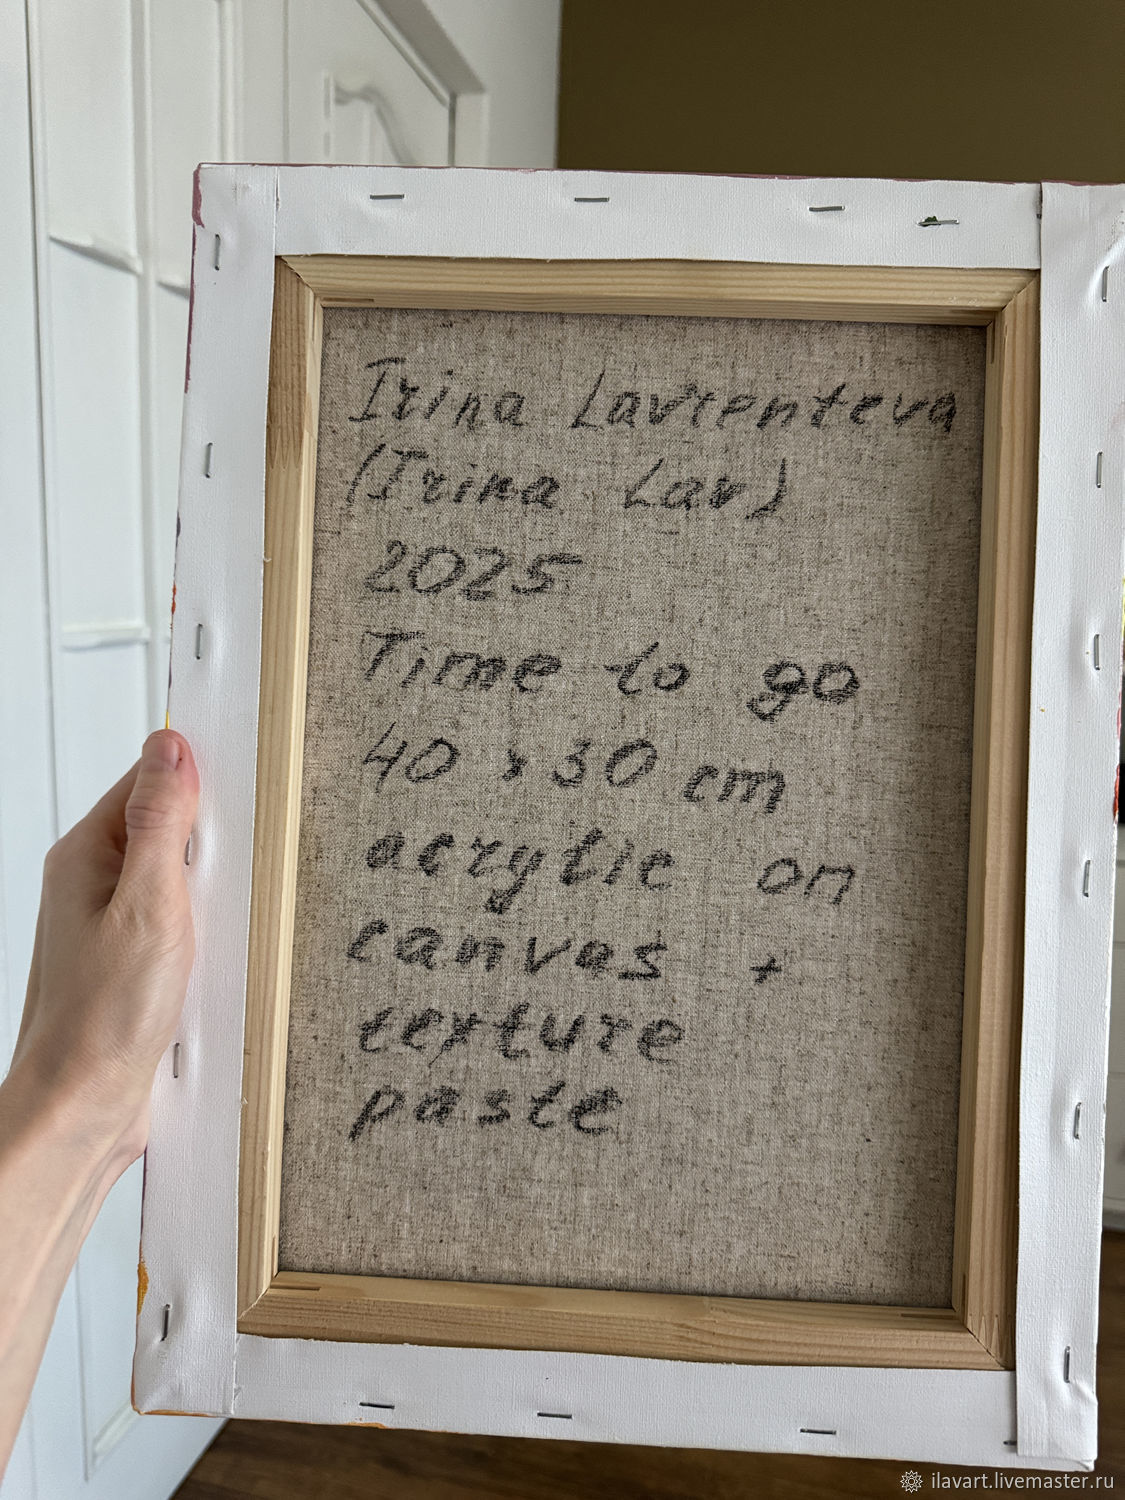 Irina Lavrenteva
(Irina Lav)
2025
Time to go
40 x 30 cm
acrylic on
canvas +
texture
paste
ilavart.livemaster.ru